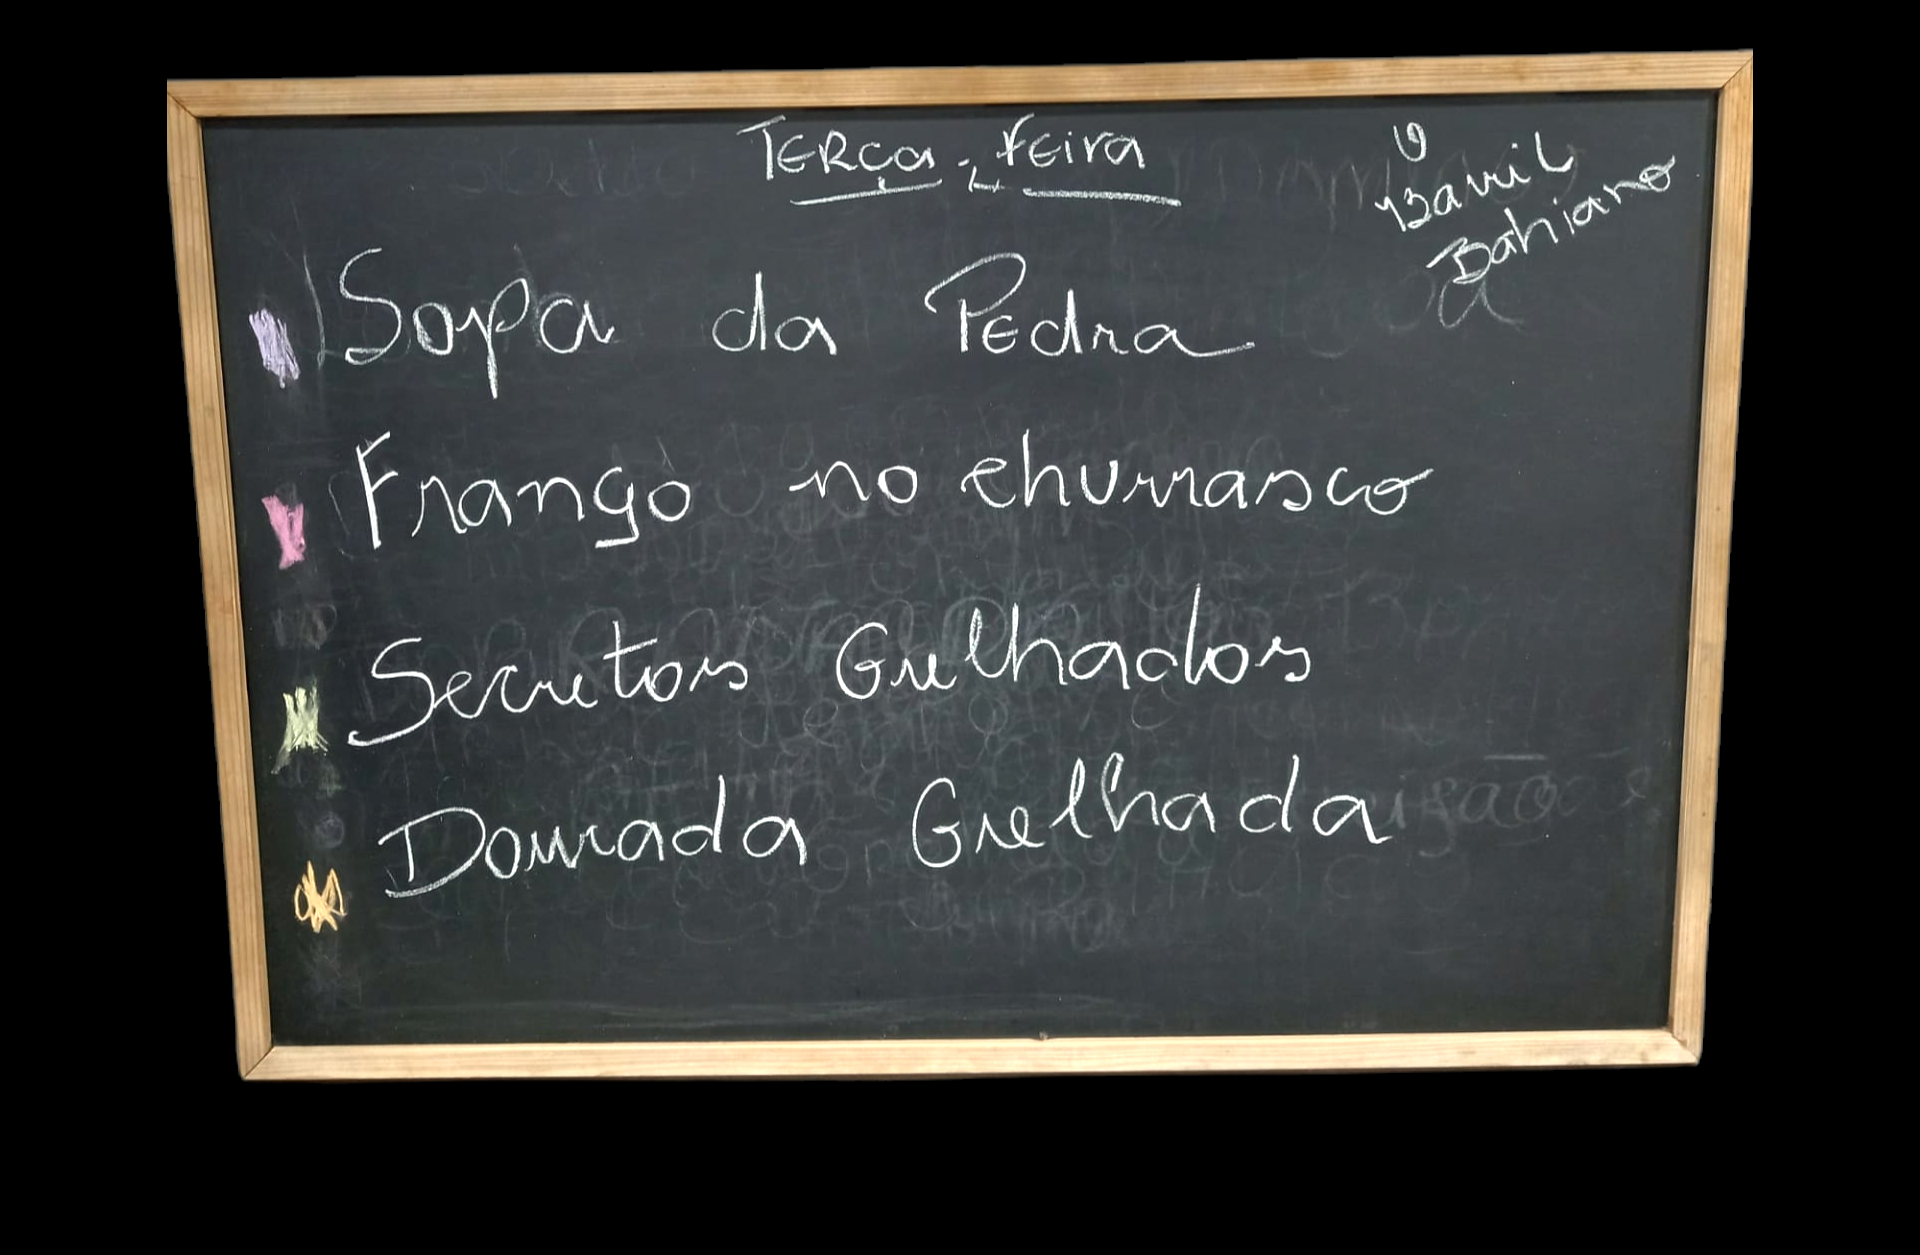 Terça-feira
O
Barril
Bahiano
Sopa da Pedra
Frango no churrasco
Secretos Grelhados
Dourada Grelhada